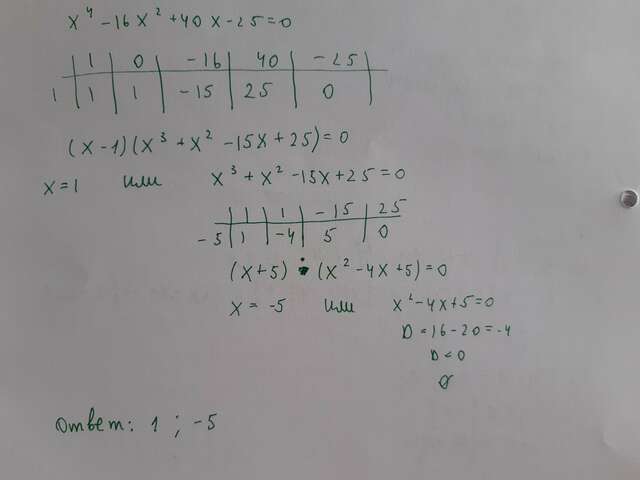 x⁴ -16x² +40x -25=0
1 0 -16 40 -25
1 1 1 -15 25 0
(x-1)(x³ + x² -15x +25)=0
x=1 или x³ + x² -15x +25 =0
1 1 -15 25
-5 1 -4 5 0
(x+5) · (x² -4x +5) =0
x = -5 или x² -4x+5=0
D = 16-20=-4
D < 0
∅
Ответ: 1 ; -5